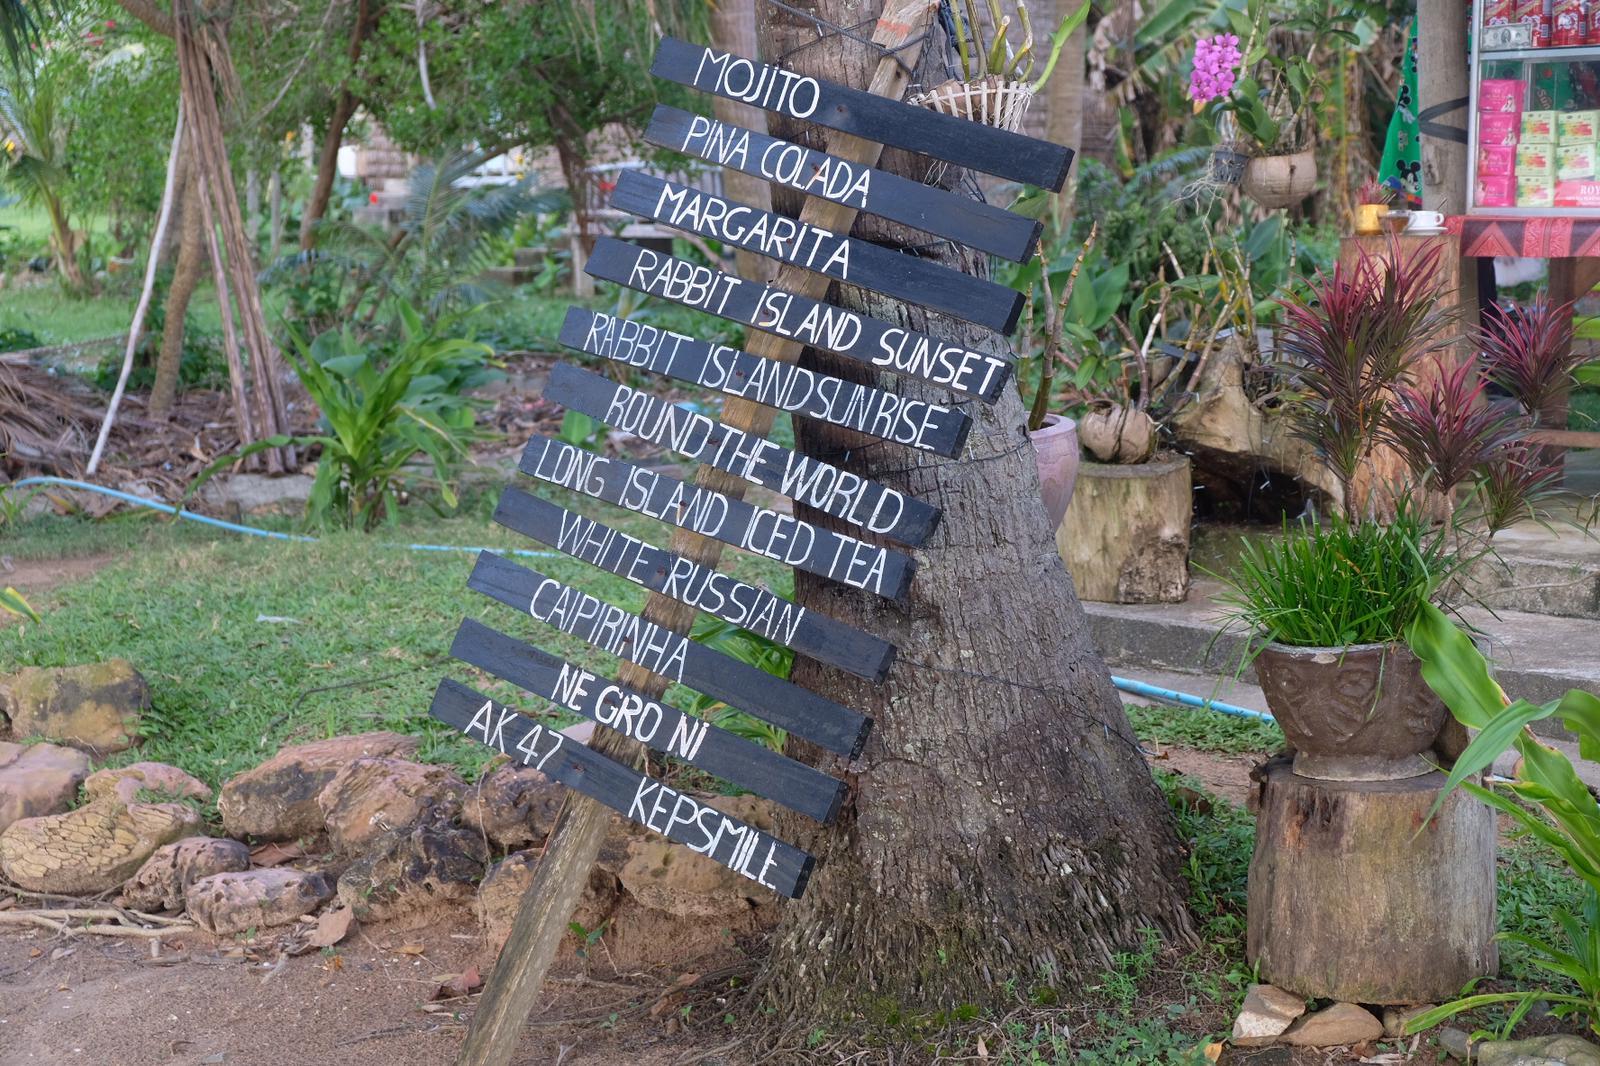 MOJITO
PINA COLADA
MARGARITA
RABBIT ISLAND SUNSET
RABBIT ISLAND SUNRISE
ROUND THE WORLD
LONG ISLAND ICED TEA
WHITE RUSSIAN
CAIPIRINHA
NE GRO NI
AK 47 KEPSMILE